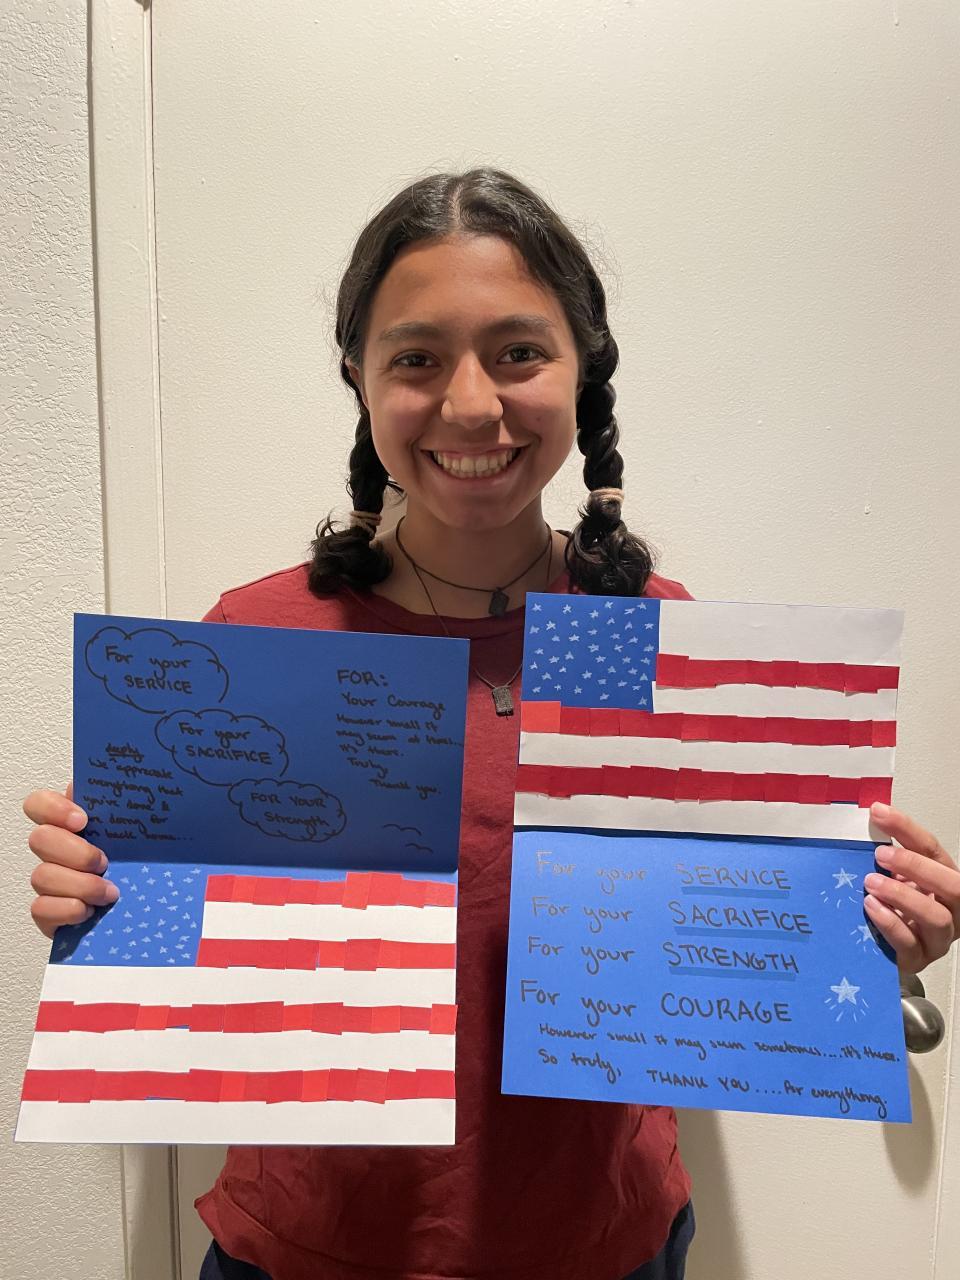 For your
SERVICE
For your
SACRIFICE
FOR YOUR
Strength
deeply
We ^ appreciate
everything that
you've done &
doing for
back
FOR:
Your Courage
However small it
may seem at times...
it's there.
Truly,
Thank you.
For your SERVICE
For your SACRIFICE
For your STRENGTH
For your COURAGE
However small it may seem sometimes.... it's there.
So truly, THANK YOU .... for everything.